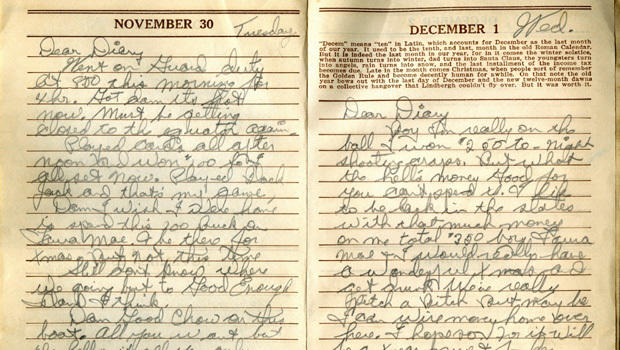 NOVEMBER 30 Tuesday.
Dear Diary
Went on Guard duty
at 800 this morning for
4hr. Hot dam its hot
now. Must be getting
closed to the equator again.
Played Cards all after
noon & I won $100
all set now. Played Black
Jack and that's my game
Dam I wish I were home
to spend this 100 Buck on
Laura Mae. & be there for
Xmas. But not this time
Still don't know where
we going but to Good Enough
Island I think.
Dam Good Chow on this
boat. All you want but
DECEMBER 1 Wed.
"Decem" means "ten" in Latin, which accounts for December as the last month
of our year. It used to be the tenth, and last, month in the old Roman Calendar.
But it is indeed the last month in our year, for in it comes the winter solstice,
when autumn turns into winter, dad turns into Santa Claus, the youngsters turn
into angels, rain turns into snow, and the last installment of the income tax
becomes due. Late in the month comes Christmas, when people sort of remember
the Golden Rule and become decently human for awhile. On that note the old
year bows out with the last day of December and the new twelve-month dawns
on a collective hangover that Lindbergh couldn't fly over. But it was worth it.
Dear Diary
Boy I'm really on the
ball I won $250 to-night
shooting craps. But what
the hell's money Good for
you can't spend it. I like
to be back in the states
with that much money
on me total $350 boy. Laura
Mae & I would really have
a wonderful Xmas and
get drunk there really
pitch a bitch. But may be
I can wire money home over
here. I hope so. For it will
be a Xmas